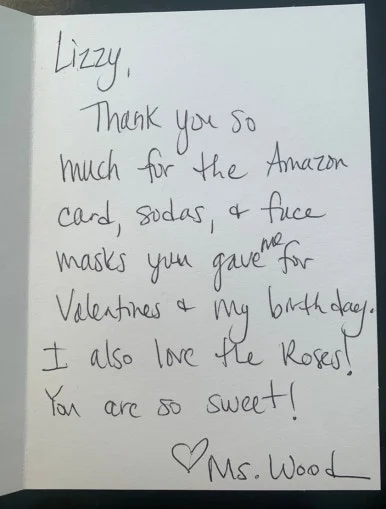 Lizzy,
Thank you so
much for the Amazon
card, sodas, & face
masks you gave me for
Valentines & my birthday.
I also love the Roses!
You are so sweet!
♡ Ms. Wood